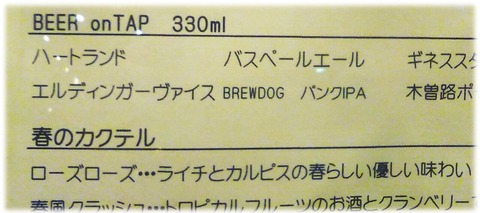 BEER onTAP 330ml
ハートランド バスペールエール ギネススタ
エルディンガーヴァイス BREWDOG パンクIPA 木曽路ポ
春のカクテル
ローズローズ…ライチとカルピスの春らしい優しい味わい
春風クラッシュ…トロピカルフルーツのお酒とクランベリー